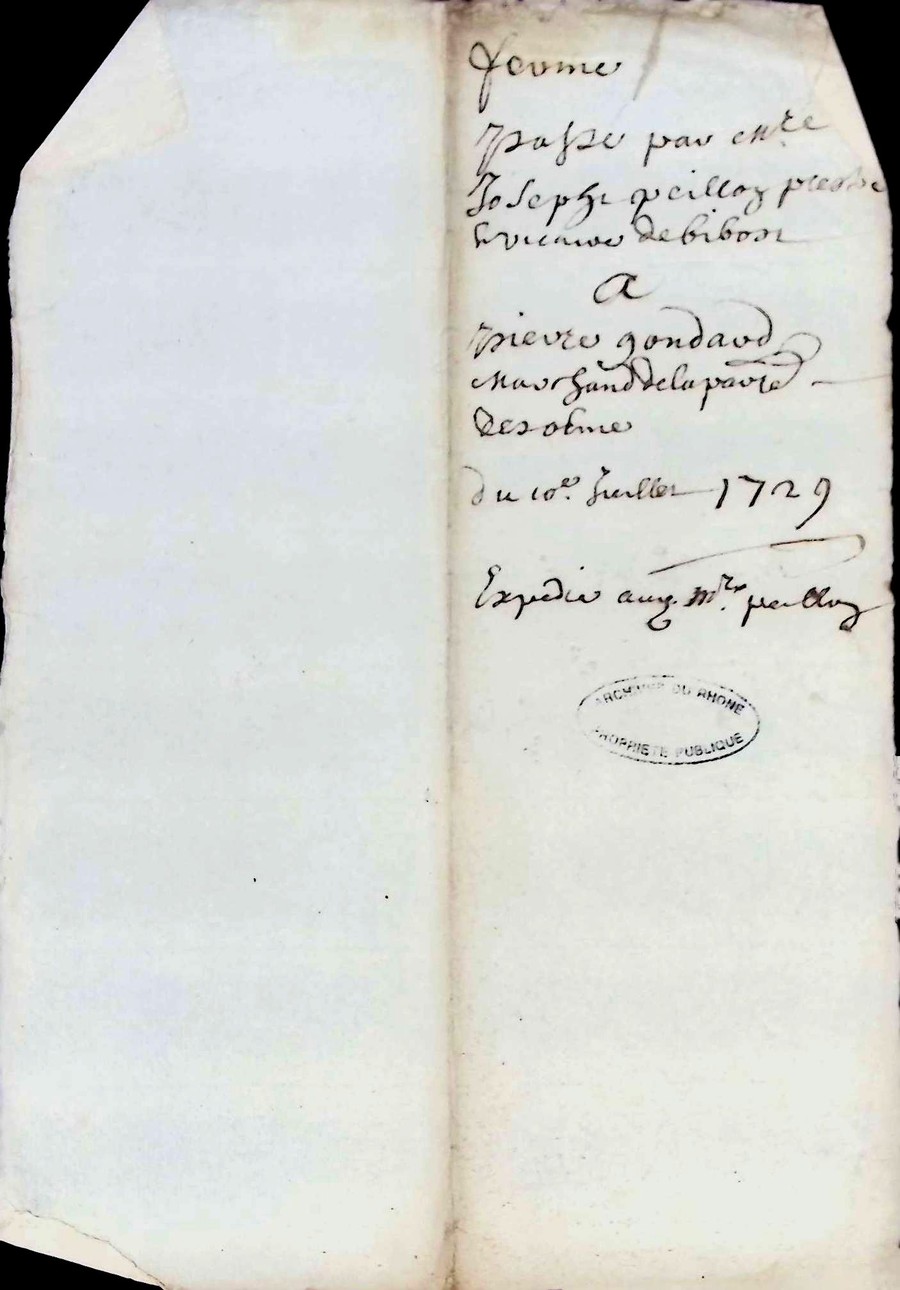 ferme
passe par Mre
Joseph peilloz prestre
& vicaire de bibost
A
pierre gondard
Marchand de la par
du 10e. Juillet 1729
Expedié aud. Mre peilloz
ARCHIVES DU RHONE
PROPRIETE PUBLIQUE